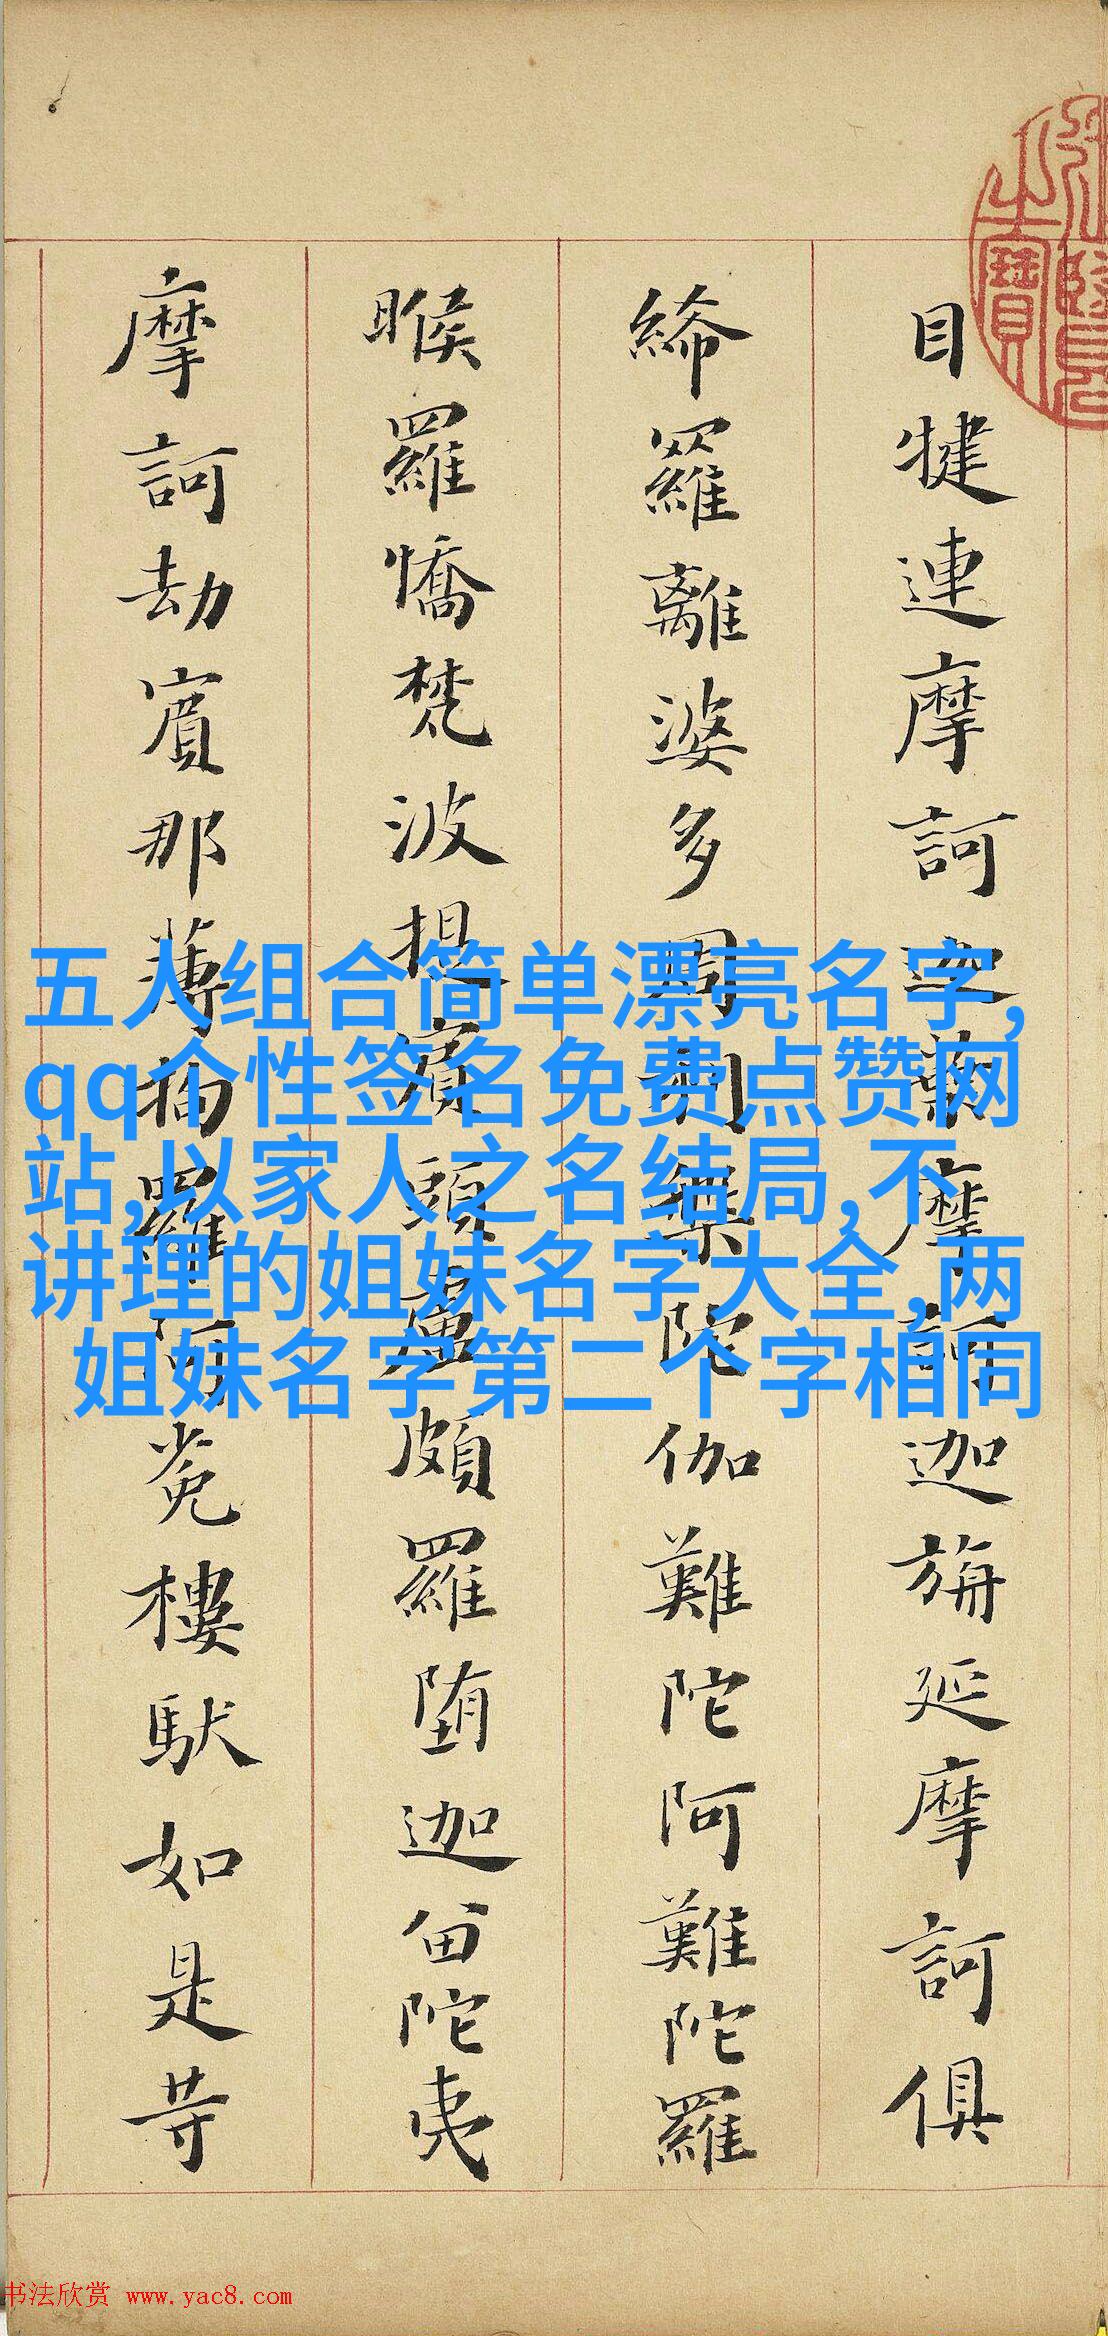 目犍連摩訶迦葉摩訶迦旃延摩訶俱
絺羅離婆多周利槃陀伽難陀阿難陀羅
睺羅憍梵波提賓頭盧頗羅堕迦留陀夷
摩訶劫賓那薄拘羅阿㝹樓馱如是等
五人组合简单漂亮名字,
qq个性签名免费点赞网
站,以家人之名结局,不
讲理的姐妹名字大全,两
姐妹名字第二个字相同
书法欣赏 www.yac8.com